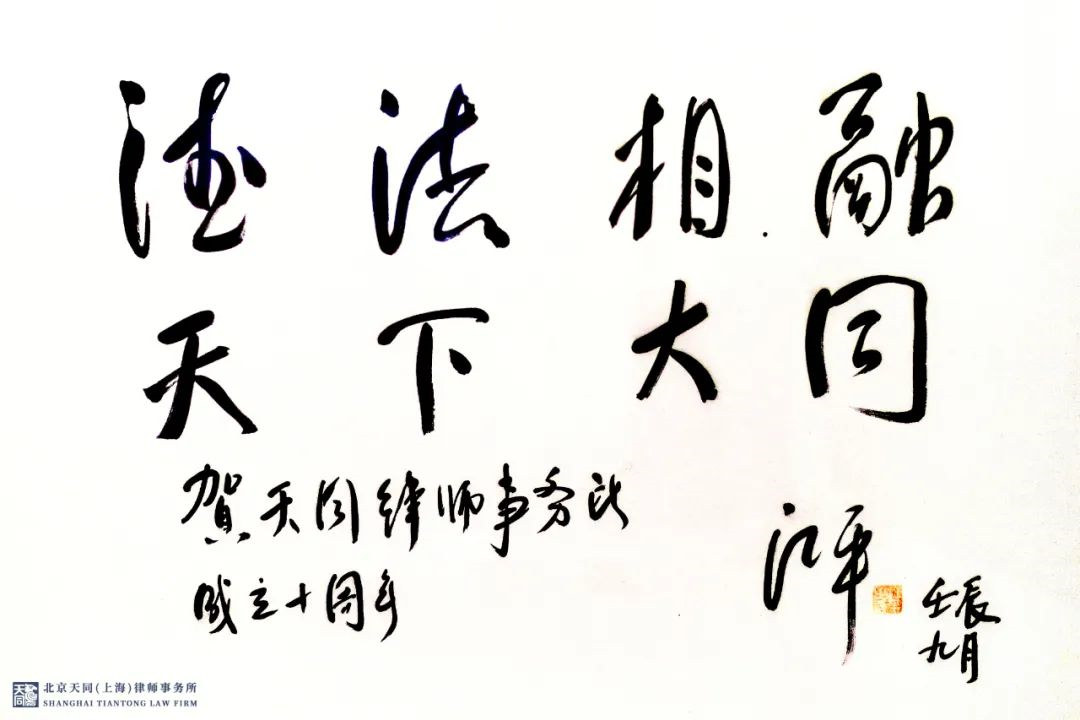 德法相融
天下大同
賀天同律师事务所
成立十周年
江平
壬辰
九月
北京天同(上海)律师事务所
SHANGHAI TIANTONG LAW FIRM